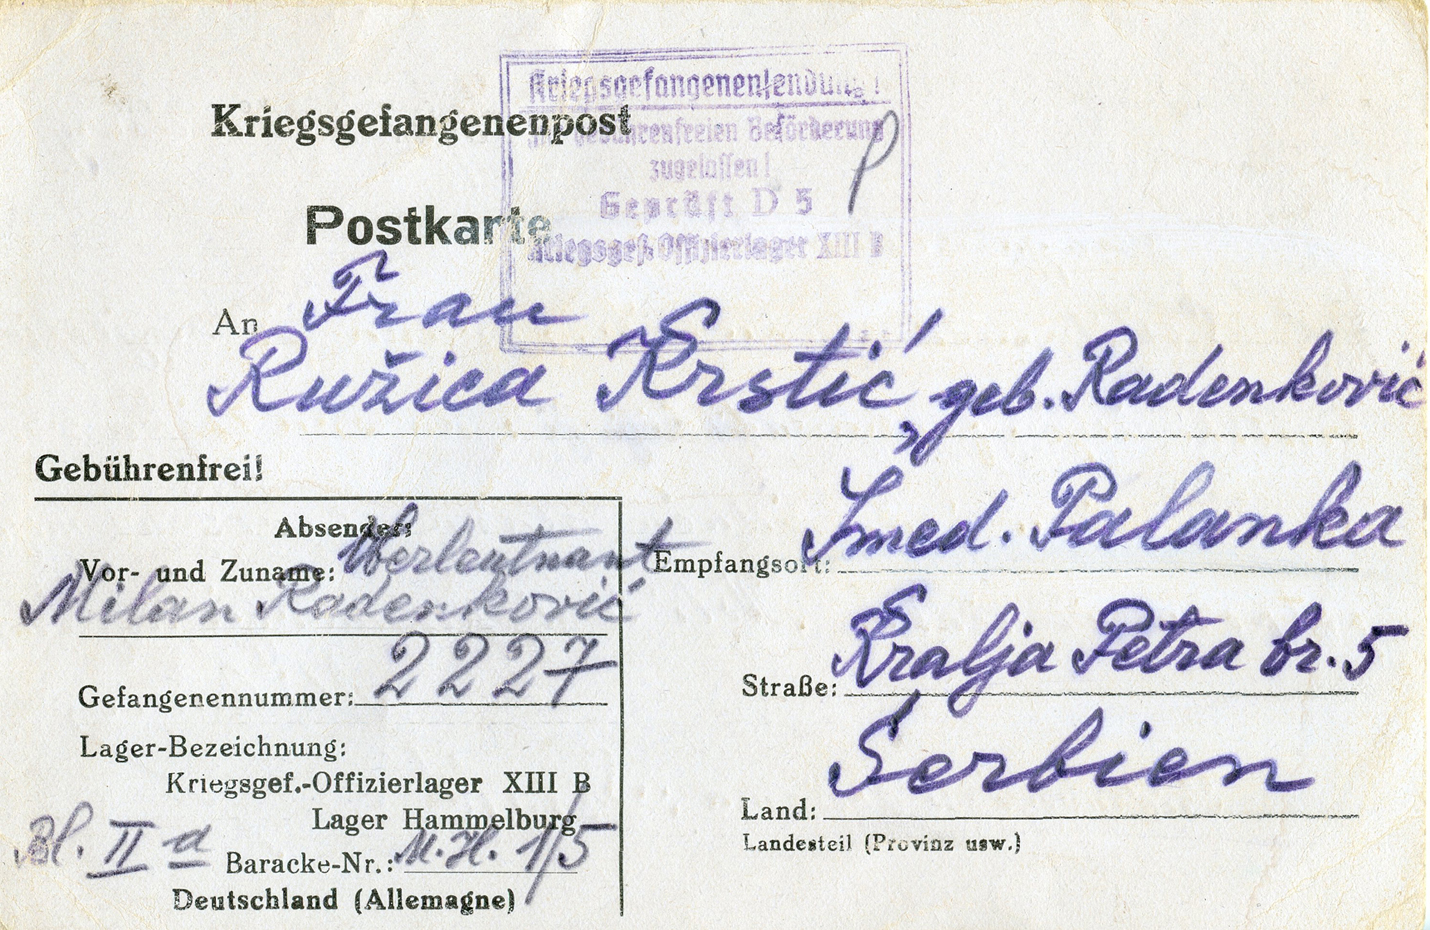 Kriegsgefangenensendung!
Kriegsgefangenenpost
gebührenfreien Beförderung
zugelassen!
Geprüft D 5
Postkarte
Kriegsgef. Offizierlager XIII B
An Frau
Ružica Krstić, geb. Radenković
Gebührenfrei!
Absender:
Vor- und Zuname: Oberleutnant
Milan Radenković
Gefangenennummer: 2227
Lager-Bezeichnung:
Kriegsgef.-Offizierlager XIII B
Lager Hammelburg
Bl. II a Baracke-Nr.: M. H. 1/5
Deutschland (Allemagne)
Empfangsort: Smed. Palanka
Straße: Kralja Petra br. 5
Land: Serbien
Landesteil (Provinz usw.)